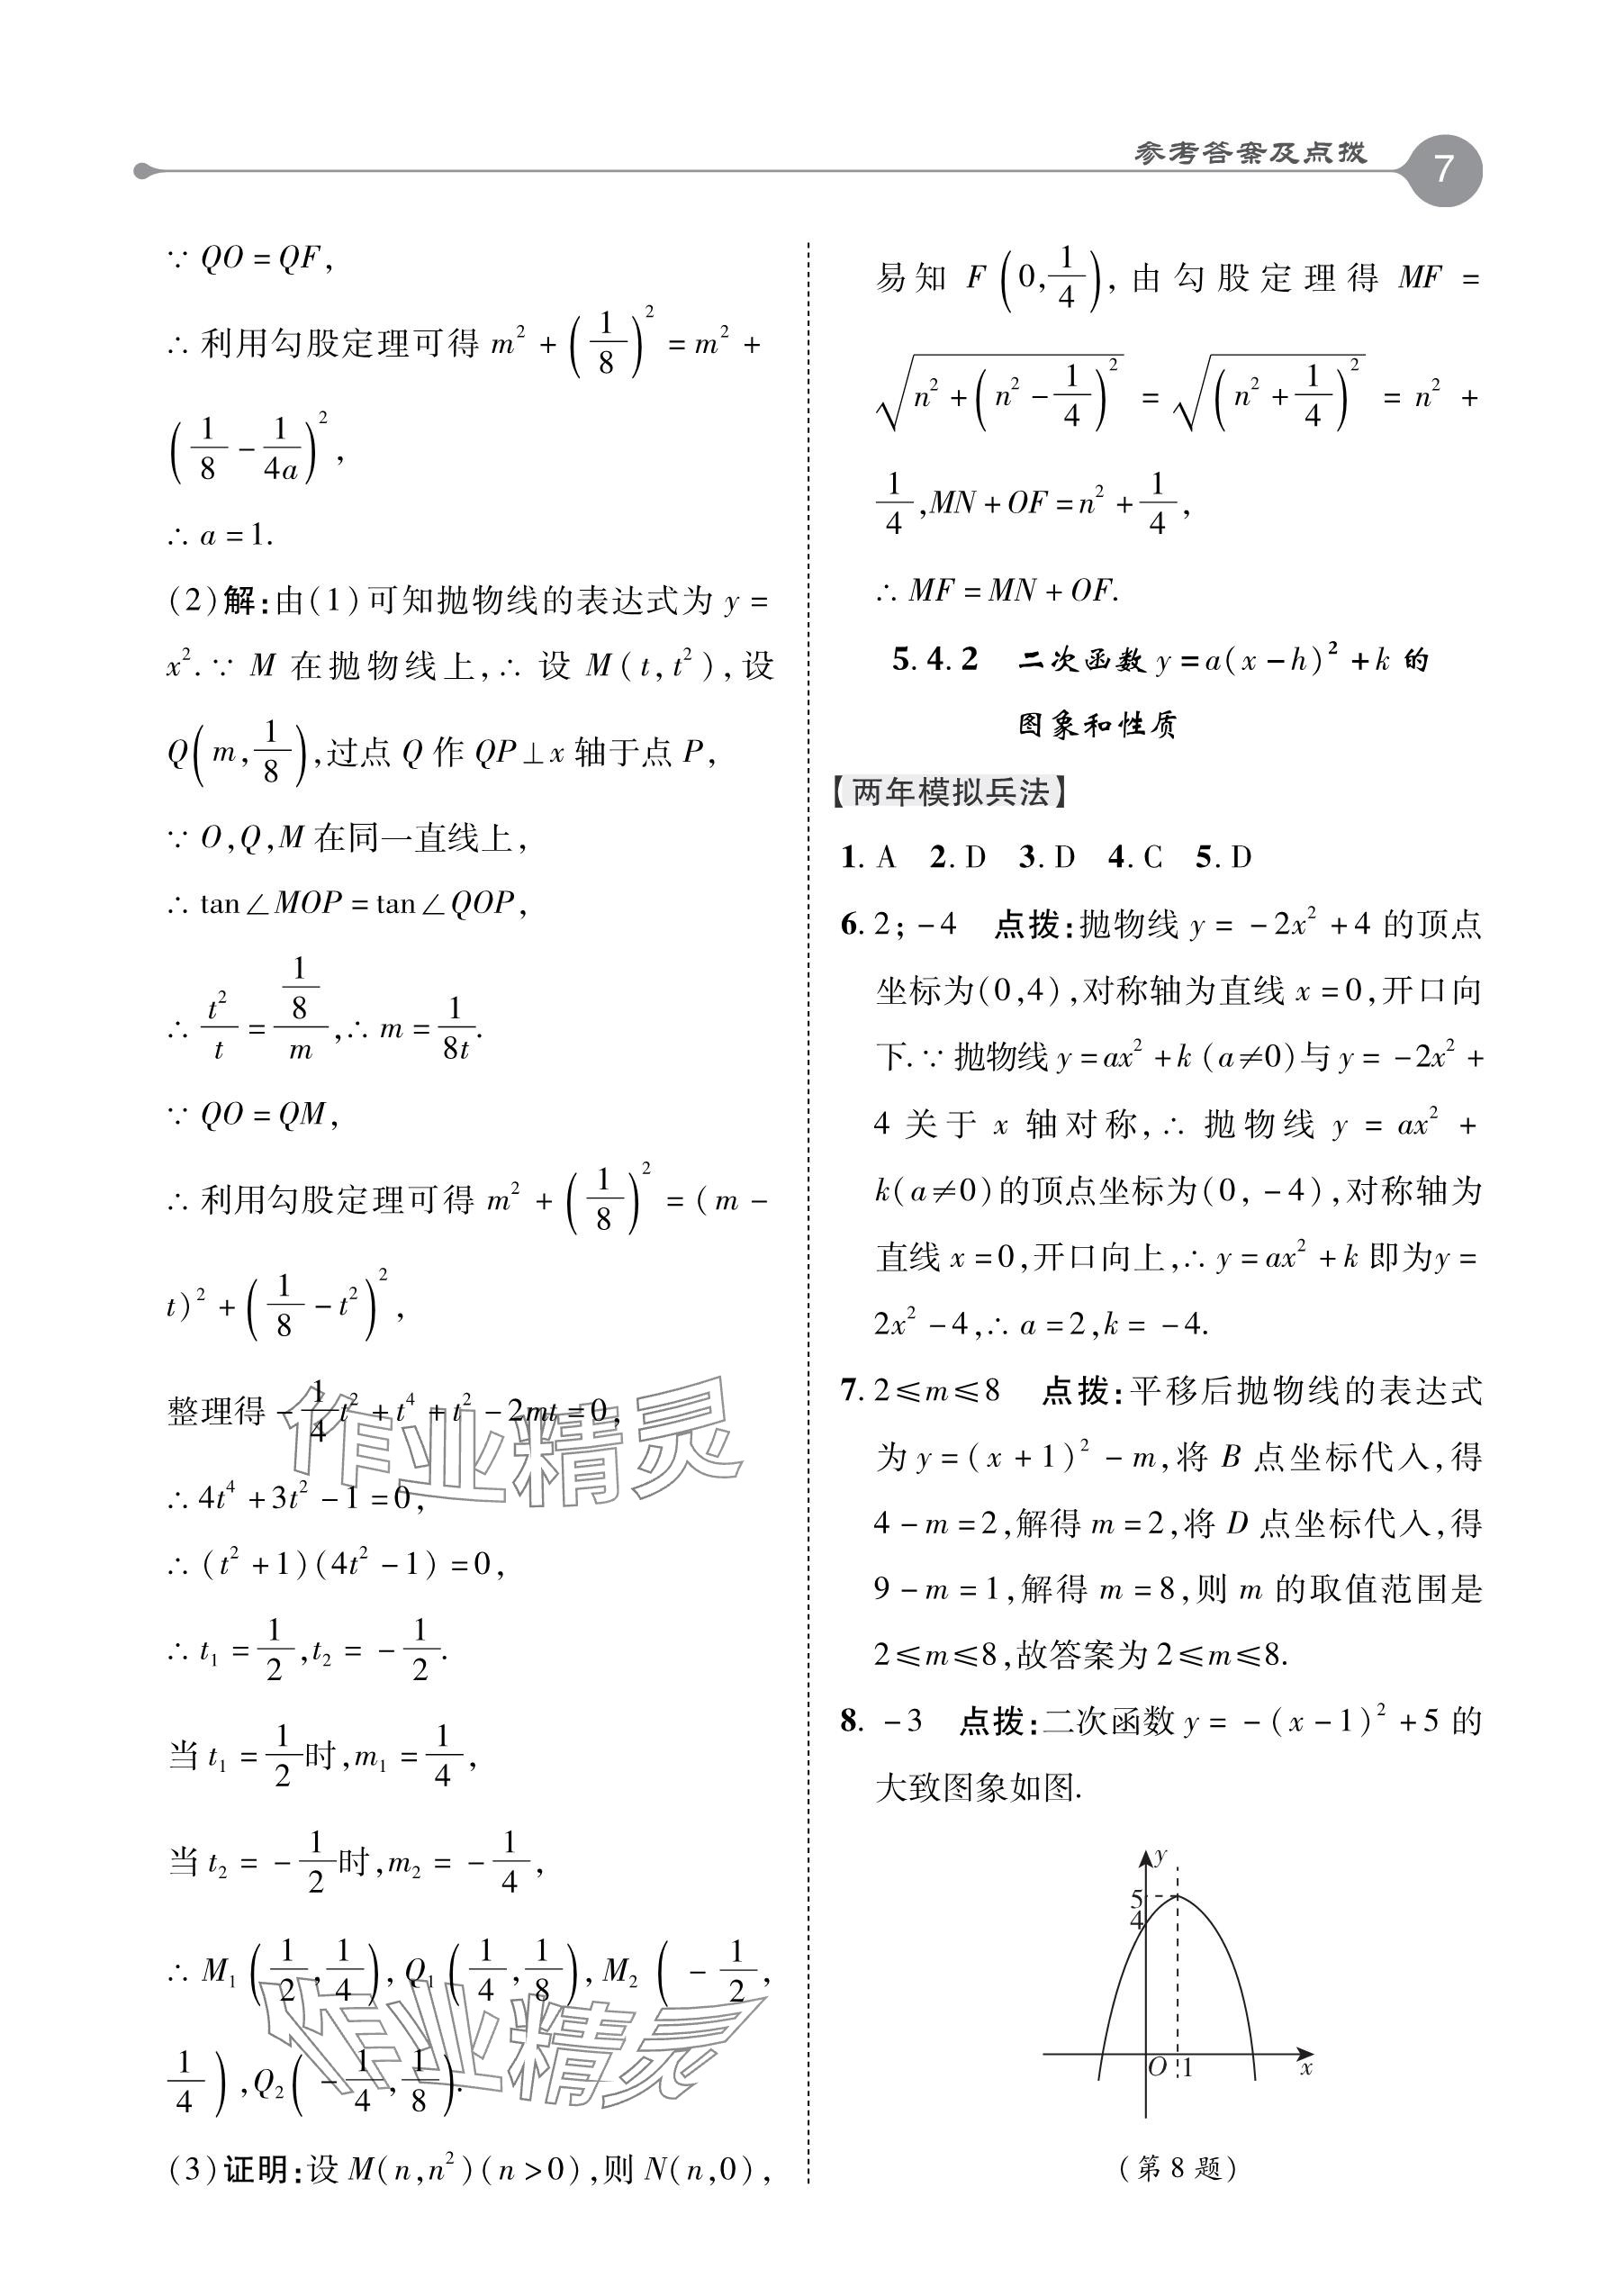 参考答案及点拨 7
∵ QO = QF,
∴ 利用勾股定理可得 m² + (1/8)² = m² +
(1/8 - 1/4a)²,
∴ a = 1.
(2)解:由(1)可知抛物线的表达式为 y =
x². ∵ M 在抛物线上,∴ 设 M(t, t²),设
Q(m, 1/8),过点 Q 作 QP⊥x 轴于点 P,
∵ O,Q,M 在同一直线上,
∴ tan∠MOP = tan∠QOP,
∴ t²/t = (1/8)/m,∴ m = 1/8t.
∵ QO = QM,
∴ 利用勾股定理可得 m² + (1/8)² = (m -
t)² + (1/8 - t²)²,
整理得 -1/4t² + t⁴ + t² - 2mt = 0,
∴ 4t⁴ + 3t² - 1 = 0,
∴ (t² + 1)(4t² - 1) = 0,
∴ t₁ = 1/2, t₂ = -1/2.
当 t₁ = 1/2时, m₁ = 1/4,
当 t₂ = -1/2时, m₂ = -1/4,
∴ M₁(1/2, 1/4), Q₁(1/4, 1/8), M₂(-1/2,
1/4), Q₂(-1/4, 1/8).
(3)证明:设 M(n, n²)(n > 0),则 N(n, 0),
易知 F(0, 1/4),由勾股定理得 MF =
√(n² + (n² - 1/4)²) = √((n² + 1/4)²) = n² +
1/4, MN + OF = n² + 1/4,
∴ MF = MN + OF.
5.4.2 二次函数 y = a(x - h)² + k 的
图象和性质
【两年模拟兵法】
1. A 2. D 3. D 4. C 5. D
6. 2; -4 点拨:抛物线 y = -2x² + 4 的顶点
坐标为(0,4),对称轴为直线 x = 0,开口向
下. ∵ 抛物线 y = ax² + k (a≠0)与 y = -2x² +
4 关于 x 轴对称,∴ 抛物线 y = ax² +
k(a≠0)的顶点坐标为(0, -4),对称轴为
直线 x = 0,开口向上,∴ y = ax² + k 即为y =
2x² - 4,∴ a = 2, k = -4.
7. 2≤m≤8 点拨:平移后抛物线的表达式
为 y = (x + 1)² - m,将 B 点坐标代入,得
4 - m = 2,解得 m = 2,将 D 点坐标代入,得
9 - m = 1,解得 m = 8,则 m 的取值范围是
2≤m≤8,故答案为 2≤m≤8.
8. -3 点拨:二次函数 y = -(x - 1)² + 5 的
大致图象如图.
y
5
4
O 1 x
(第 8 题)
作业精灵
作业精灵